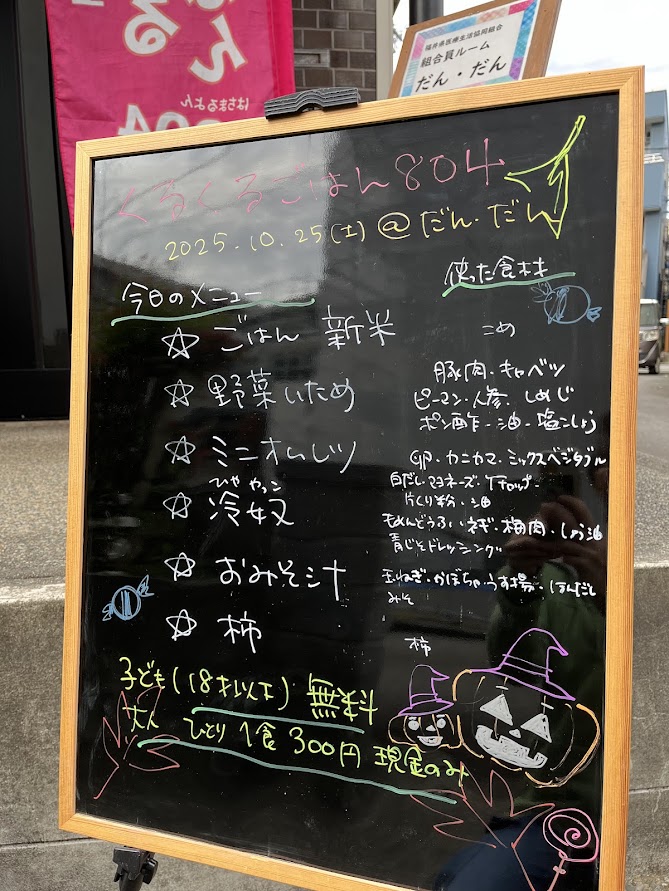 はちまるよん
福井県医療生活協同組合
組合員ルーム
だん・だん
くるくるごはん804
2025.10.25(土)@だん・だん
今日のメニュー
☆ごはん 新米
☆野菜いため
☆ミニオムレツ
ひややっこ
☆冷奴
☆おみそ汁
☆柿
使った食材
こめ
豚肉・キャベツ
ピーマン・人参・しめじ
ポン酢・油・塩こしょう
卵・カニカマ・ミックスベジタブル
白だし・マヨネーズ・ケチャップ・
片くり粉・油
もめんどうふ・ネギ・梅肉・しょう油
青じそドレッシング
玉ねぎ・かぼちゃ・うす揚・ほんだし
みそ
柿
子ども(18才以下) 無料
大人 ひとり1食300円 現金のみ